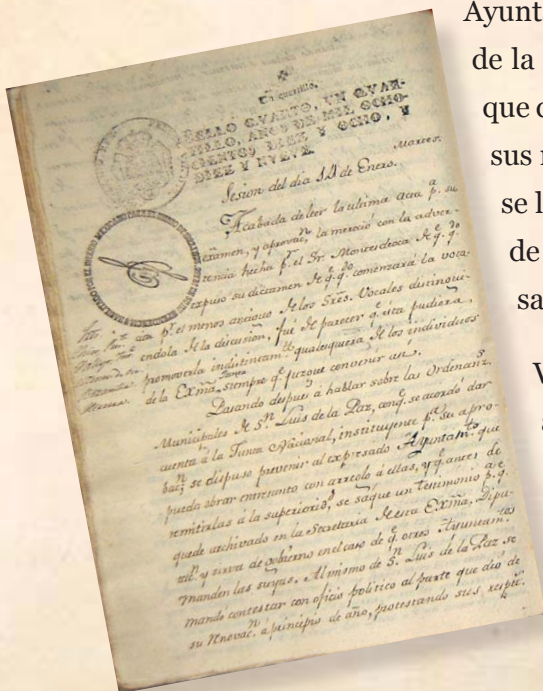 Un quartillo.
SELLO QVARTO, VN QVAR-
TILLO, AÑOS DE MIL OCHO-
CIENTOS DIEZ Y OCHO, Y
DIEZ Y NVEVE.
Martes.
Sesion del dia 14 de Enero.
Acabada de leer la ultima acta pª. su
examen, y aprovacⁿ. la mereció con la adver-
tencia hecha pʳ. el Sr. Montesdeoca de q. qᵈᵒ
expuso su dictamen de q. qᵈᵒ comenzará la vota-
cion pʳ. el menos antiguo de los Sres. Vocales distingui-
endola de la discusion, fué de parecer q. esta pudiera,
promoverla indistintamᵗᵉ. qualesquiera de los individuos
de la Exma. siempre q. juzgue convenir
Pasando despues á hablar sobre las Ordenanzˢ.
Municipales de Sⁿ. Luis de la Paz, conq. se acordó dar
cuenta á la Junta Nacional, instituyente pª. su apro-
bacⁿ. se dispuso prevenir al expresado Ayuntamᵗᵒ. que
pueda obrar entretanto con arreglo á ellas, y q. antes de
remitirlas á la superioridᵈ. se saque un testimonio pª. q.
quede archivado en la Secretaria de esta Exma. Dipu-
tacⁿ. y sirva de gobierno en el caso de q. otros Ayuntamᵗᵒˢ
manden las suyas. Al mismo de Sⁿ. Luis de la Paz se
mandó contestar con oficio político al parte que dió de
su renovacⁿ. á principio de año, protestando
Ayunt
de la
que
sus
se
de
sa
V